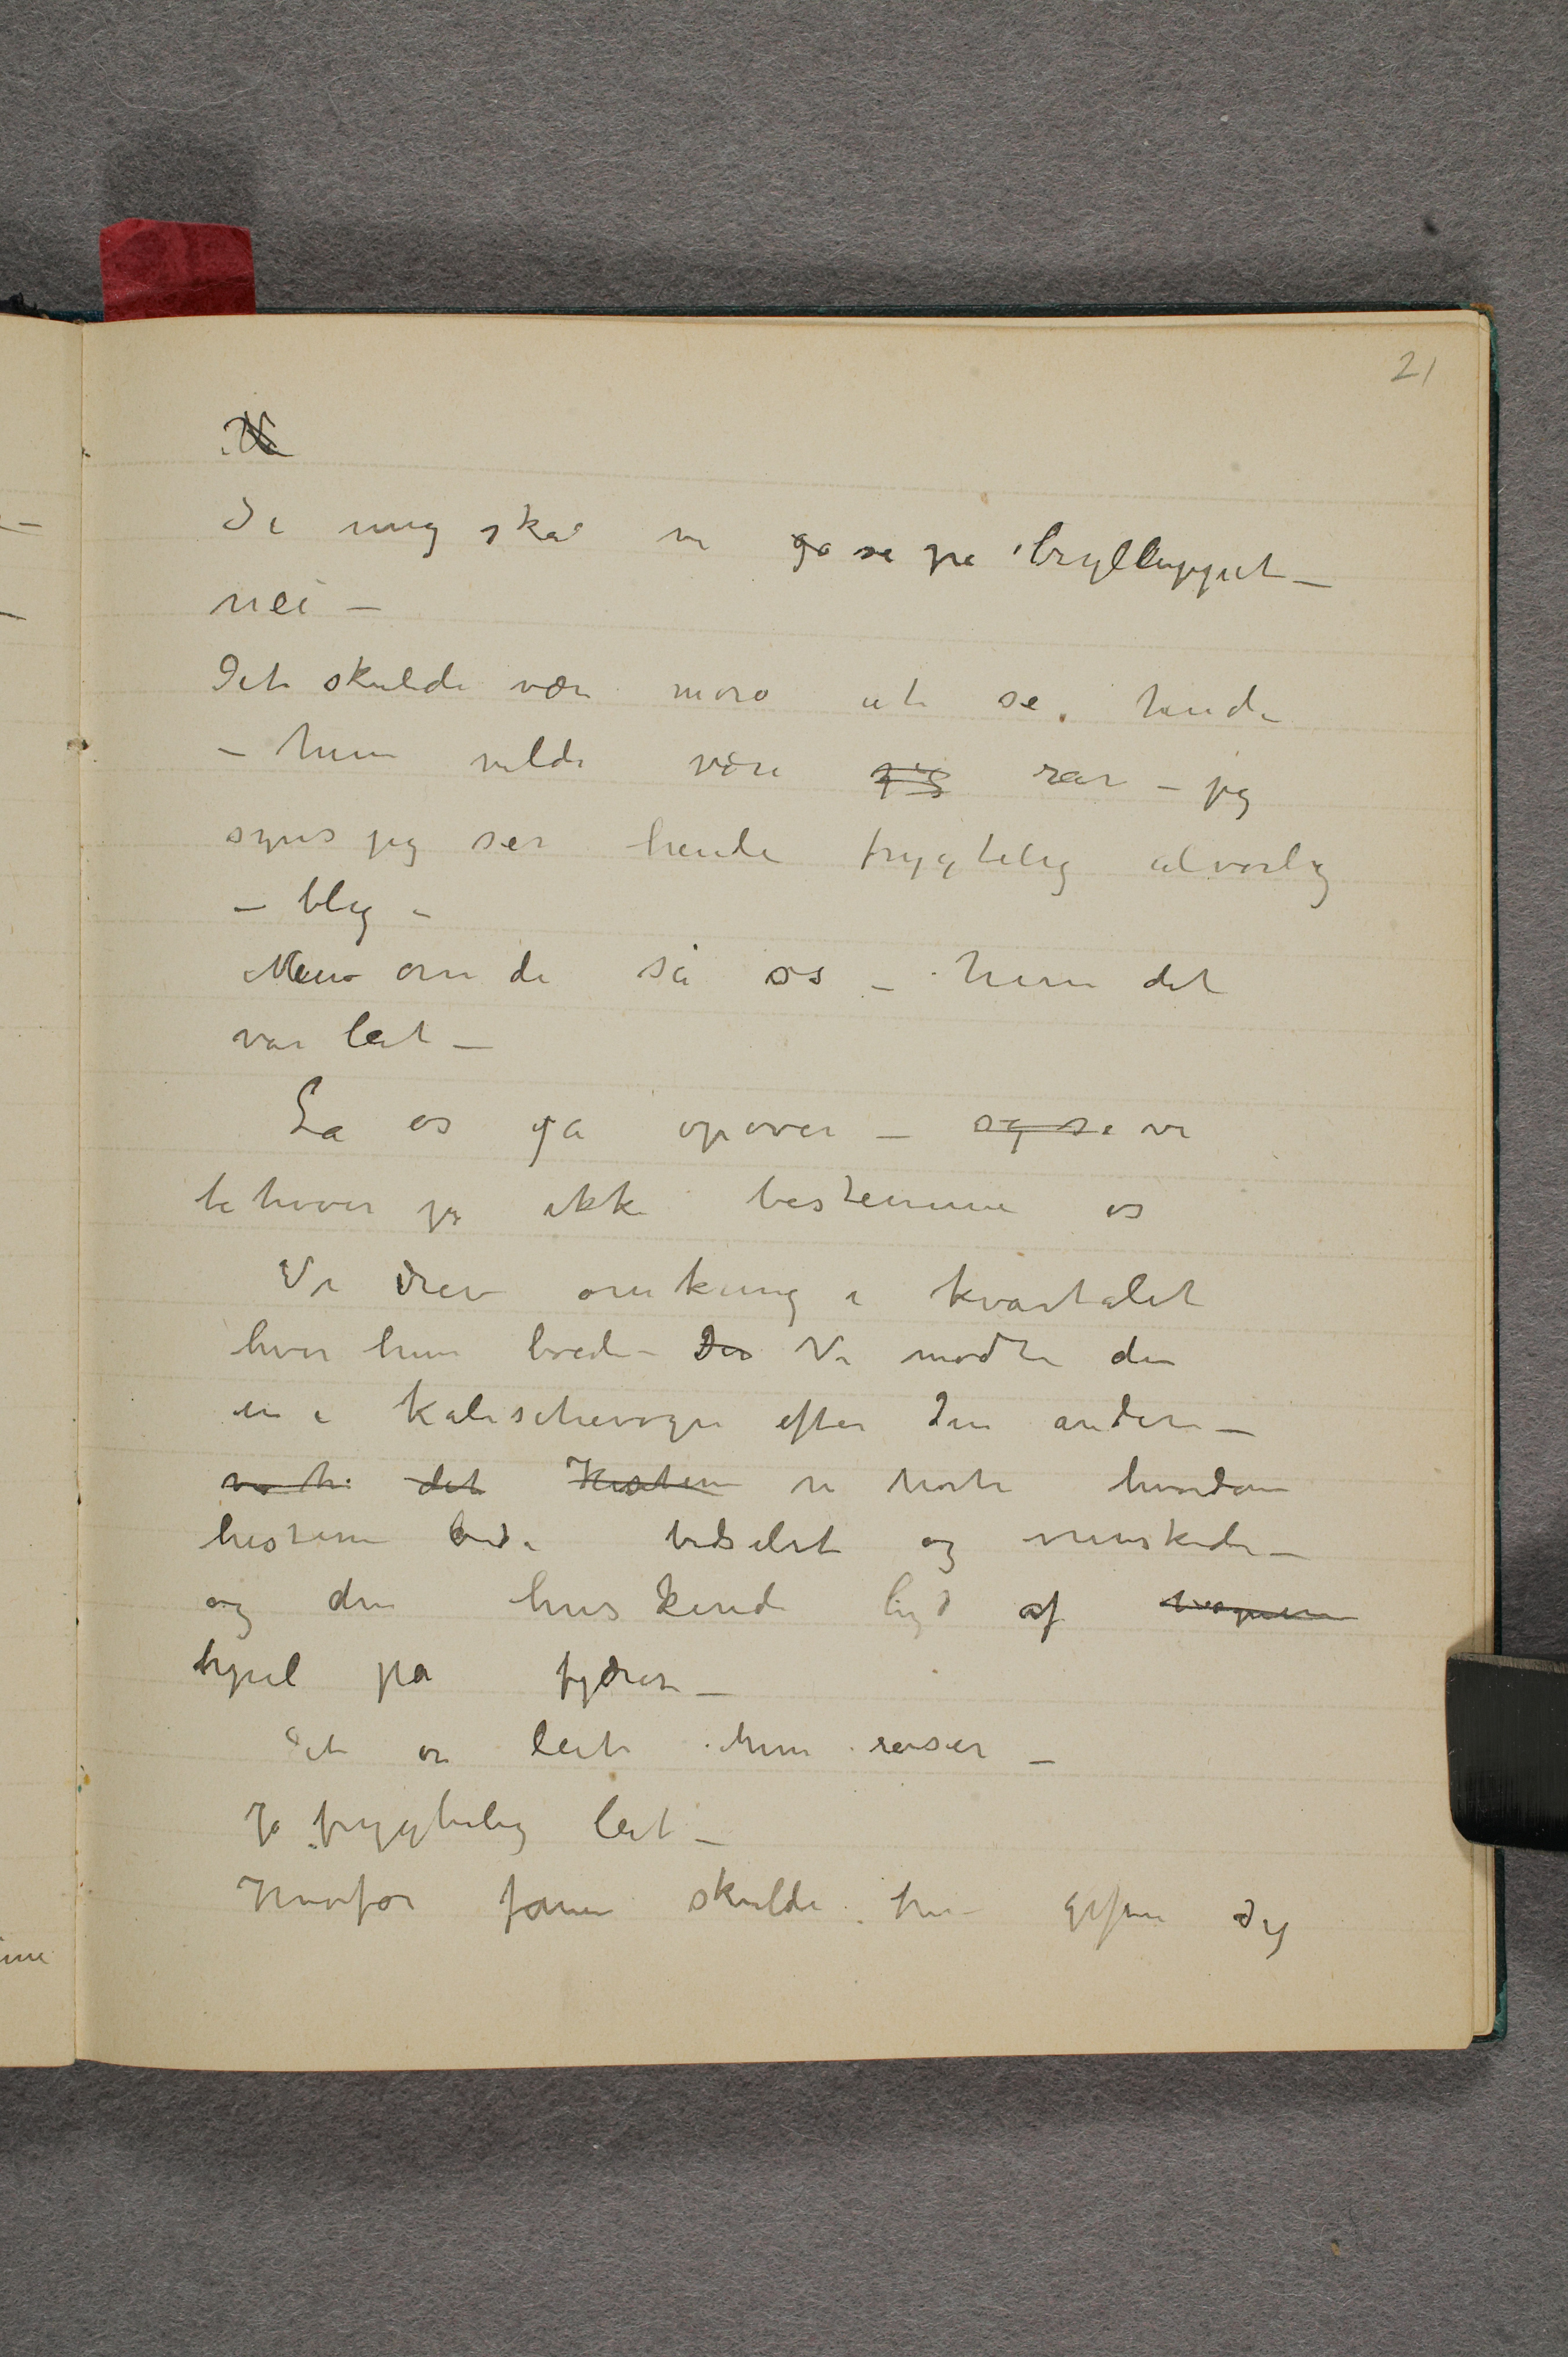 21
Si mig skal vi gå se på brylluppet –
nei –
Det skulde være moro at se hende
– hun vilde være rar – jeg
synes jeg ser hende frygtelig alvorlig
– bleg –
Men om de så os – hun det
var leit –
La os gå opover – og så vi
behøver jo ikke bestemme os
Vi drev omkring i kvartalet
hvor hun boede – Der Vi mødte den
ene kalischevogn efter den anden –
det Hestene vi hørte hvordan
hestene bed i bidselet og vrinskede –
og den huskende lyd af vognene
hjul på fjedrer –
Det er leit hun reiser –
Ja frygtelig leit –
Hvorfor fanen skulde hun gifte sig